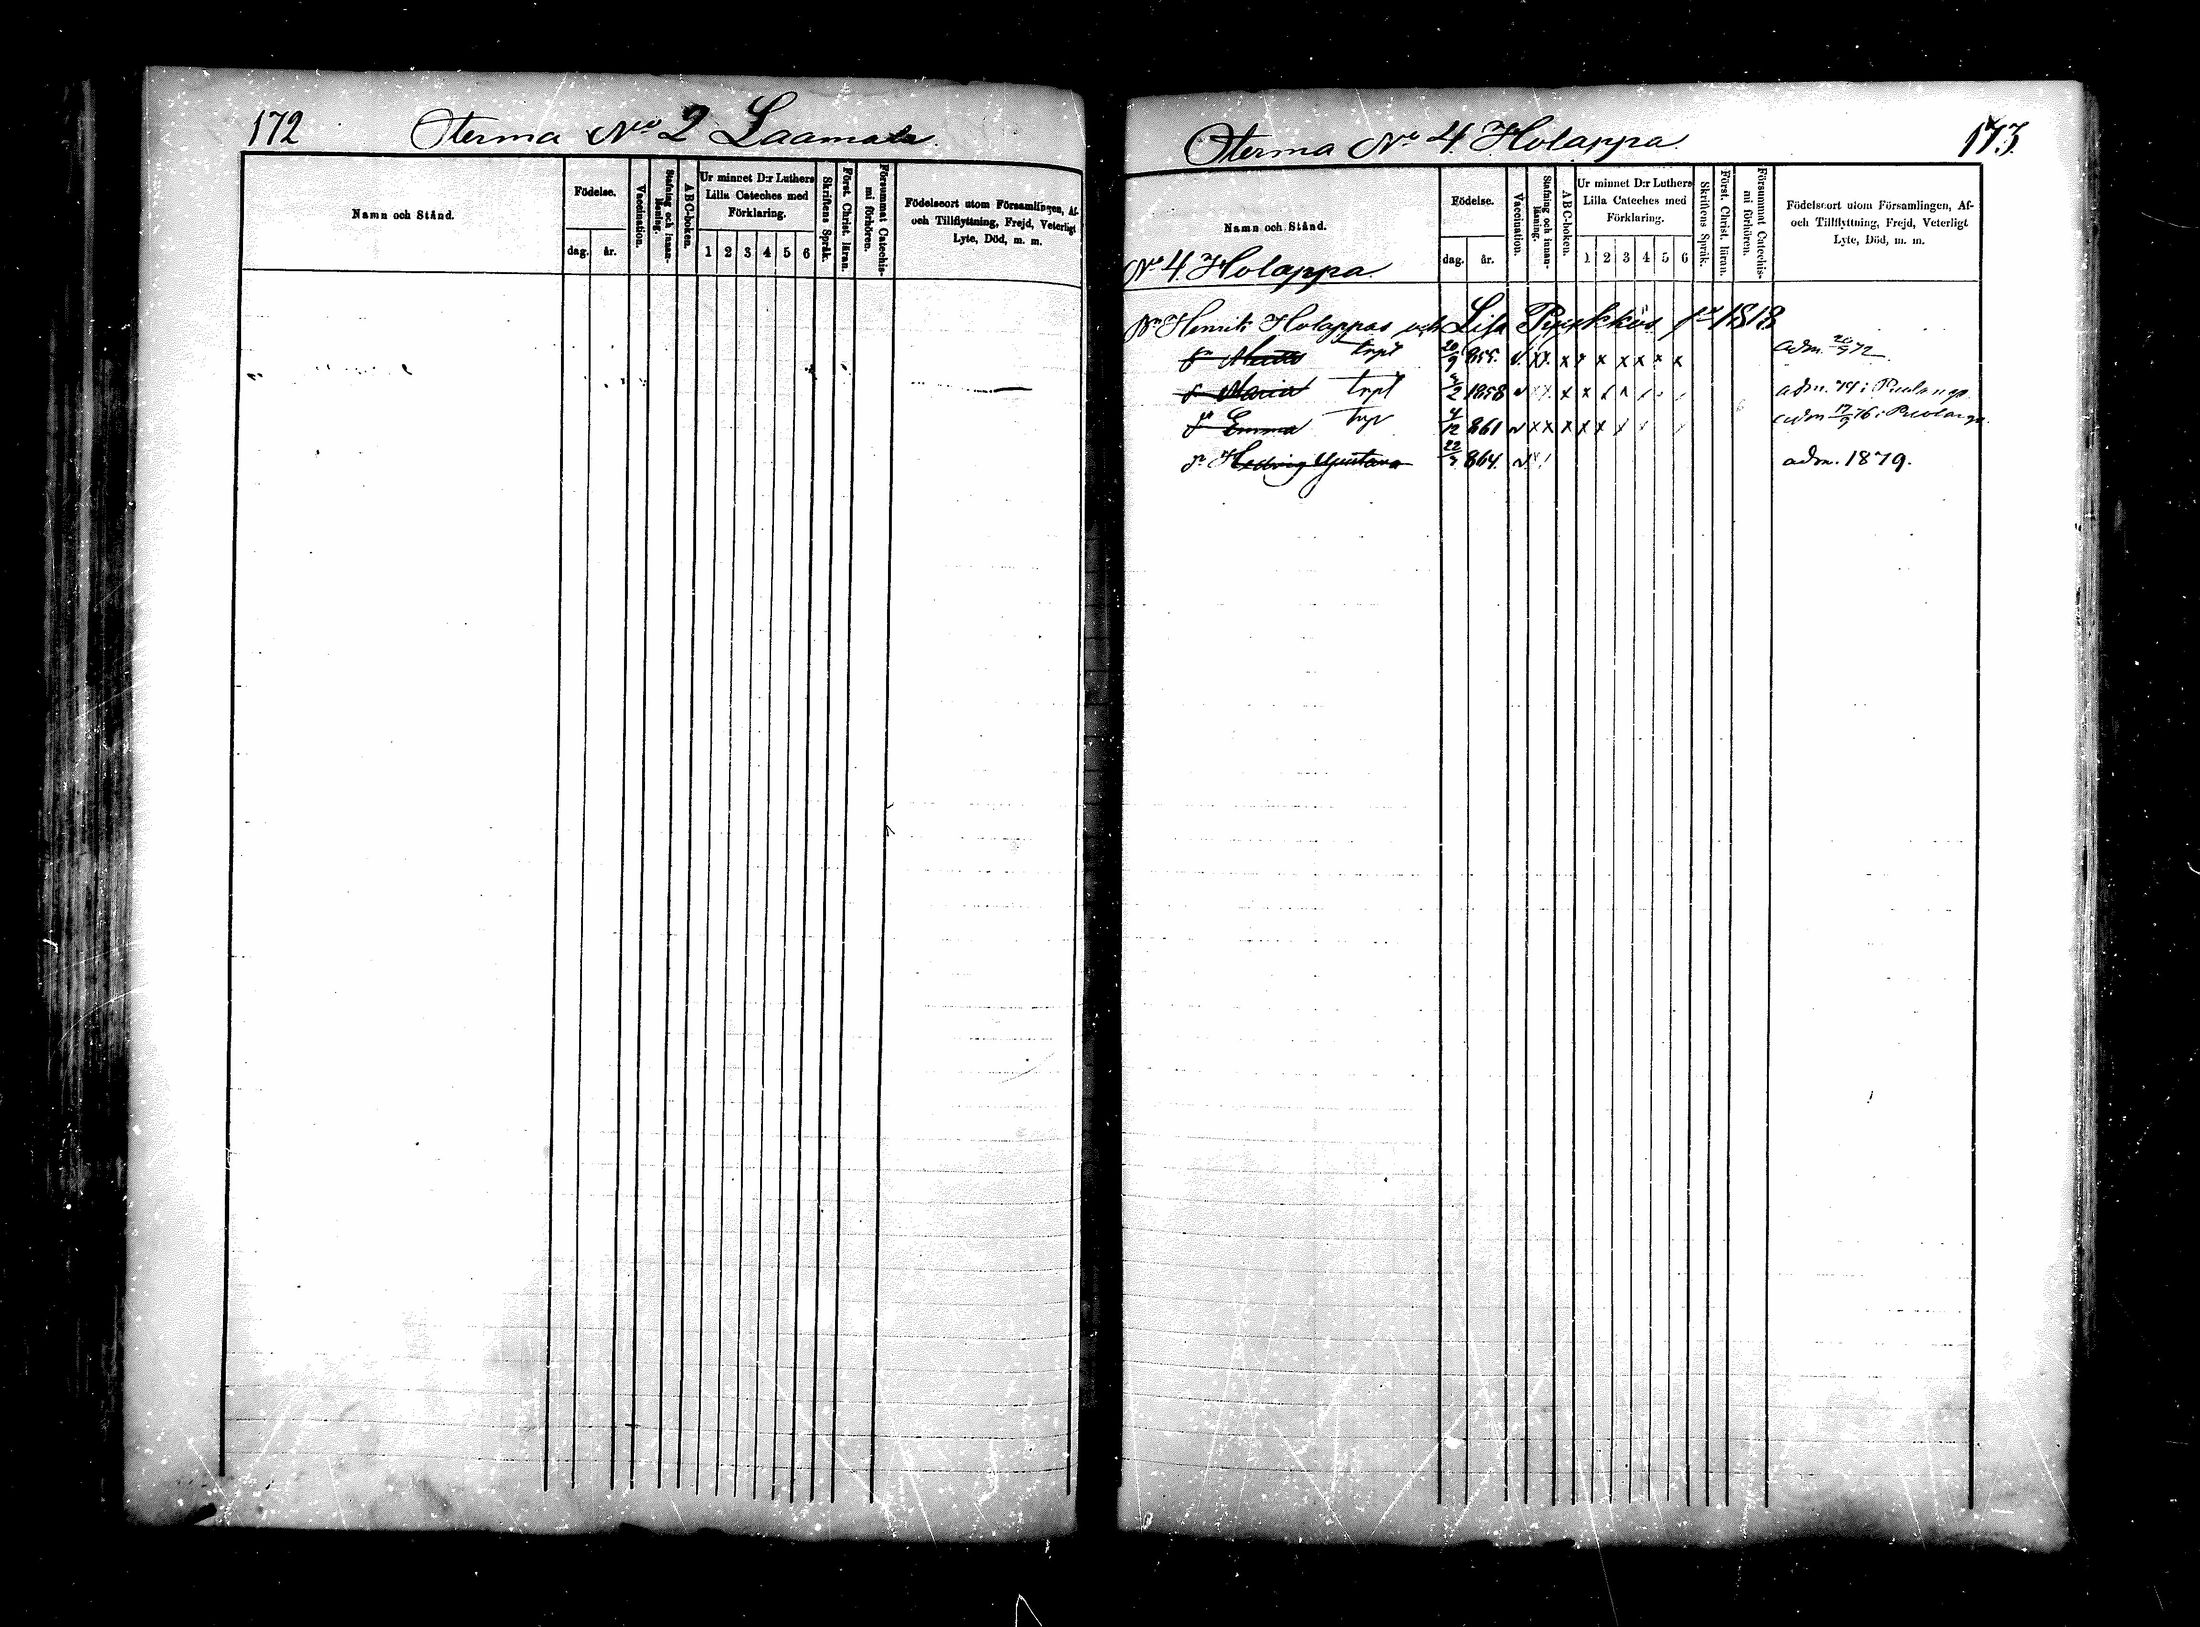 172 Oterma No 2 Laamala.
Namn och Stånd.
Födelse.
dag. år.
Vaccination.
Stafning och innan-
läsning.
ABC-boken.
Ur minnet D:r Luthers
Lilla Cateches med
Förklaring.
1 2 3 4 5 6
Skriftens Språk.
Först. Christ. läran.
Försummat Catechis-
mi förhören.
Födelseort utom Församlingen, Af-
och Tillflyttning, Frejd, Veterligt
Lyte, Död, m. m.
Oterma No 4 Holappa 173.
Namn och Stånd.
Födelse.
dag. år.
Vaccination.
Stafning och innan-
läsning.
ABC-boken.
Ur minnet D:r Luthers
Lilla Cateches med
Förklaring.
1 2 3 4 5 6
Skriftens Språk.
Först. Christ. läran.
Försummat Catechis-
mi förhören.
Födelseort utom Församlingen, Af-
och Tillflyttning, Frejd, Veterligt
Lyte, Död, m. m.
No 4 Holappa
Henrik Holappas och Lisa Pyykkös 1818
trpl 20/9 855. adm. 72
Maria trpl 1858 adm. 74 i Puolango
Emma 4/12 861 adm 76 i Puolango
Hedvig Gustava 864. adm. 1879.